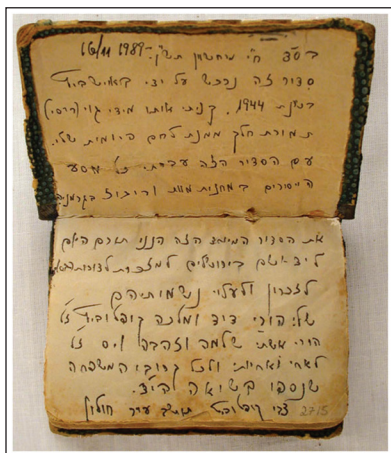 בס"ד ח"י מרחשון תש"ן - 16/11 1989
סידור זה נרכש על ידי באושביץ
בשנת 1944. קניתי אותו מידי גוי
תמורת חלק ממנת לחם היומית שלי.
עם הסדור הזה עברתי כל מסע
היסורים במחנות מוות וריכוז בגרמניה
את הסדור המיוחד הזה הנני תורם היום
ליד-ושם בירושלים למזכרת לדורות הבאים
לזכרון ולעלוי נשמותיהם
של: הורי דוד ומלכה קופלוביץ ז"ל
הורי אשתי שלמה וזהבה וייס ז"ל
לאחי ואחיותי ולכל קרובי המשפחה
שנספו בשואה הי"ד.
צבי קופלוביץ תושב עיר חולון
2715